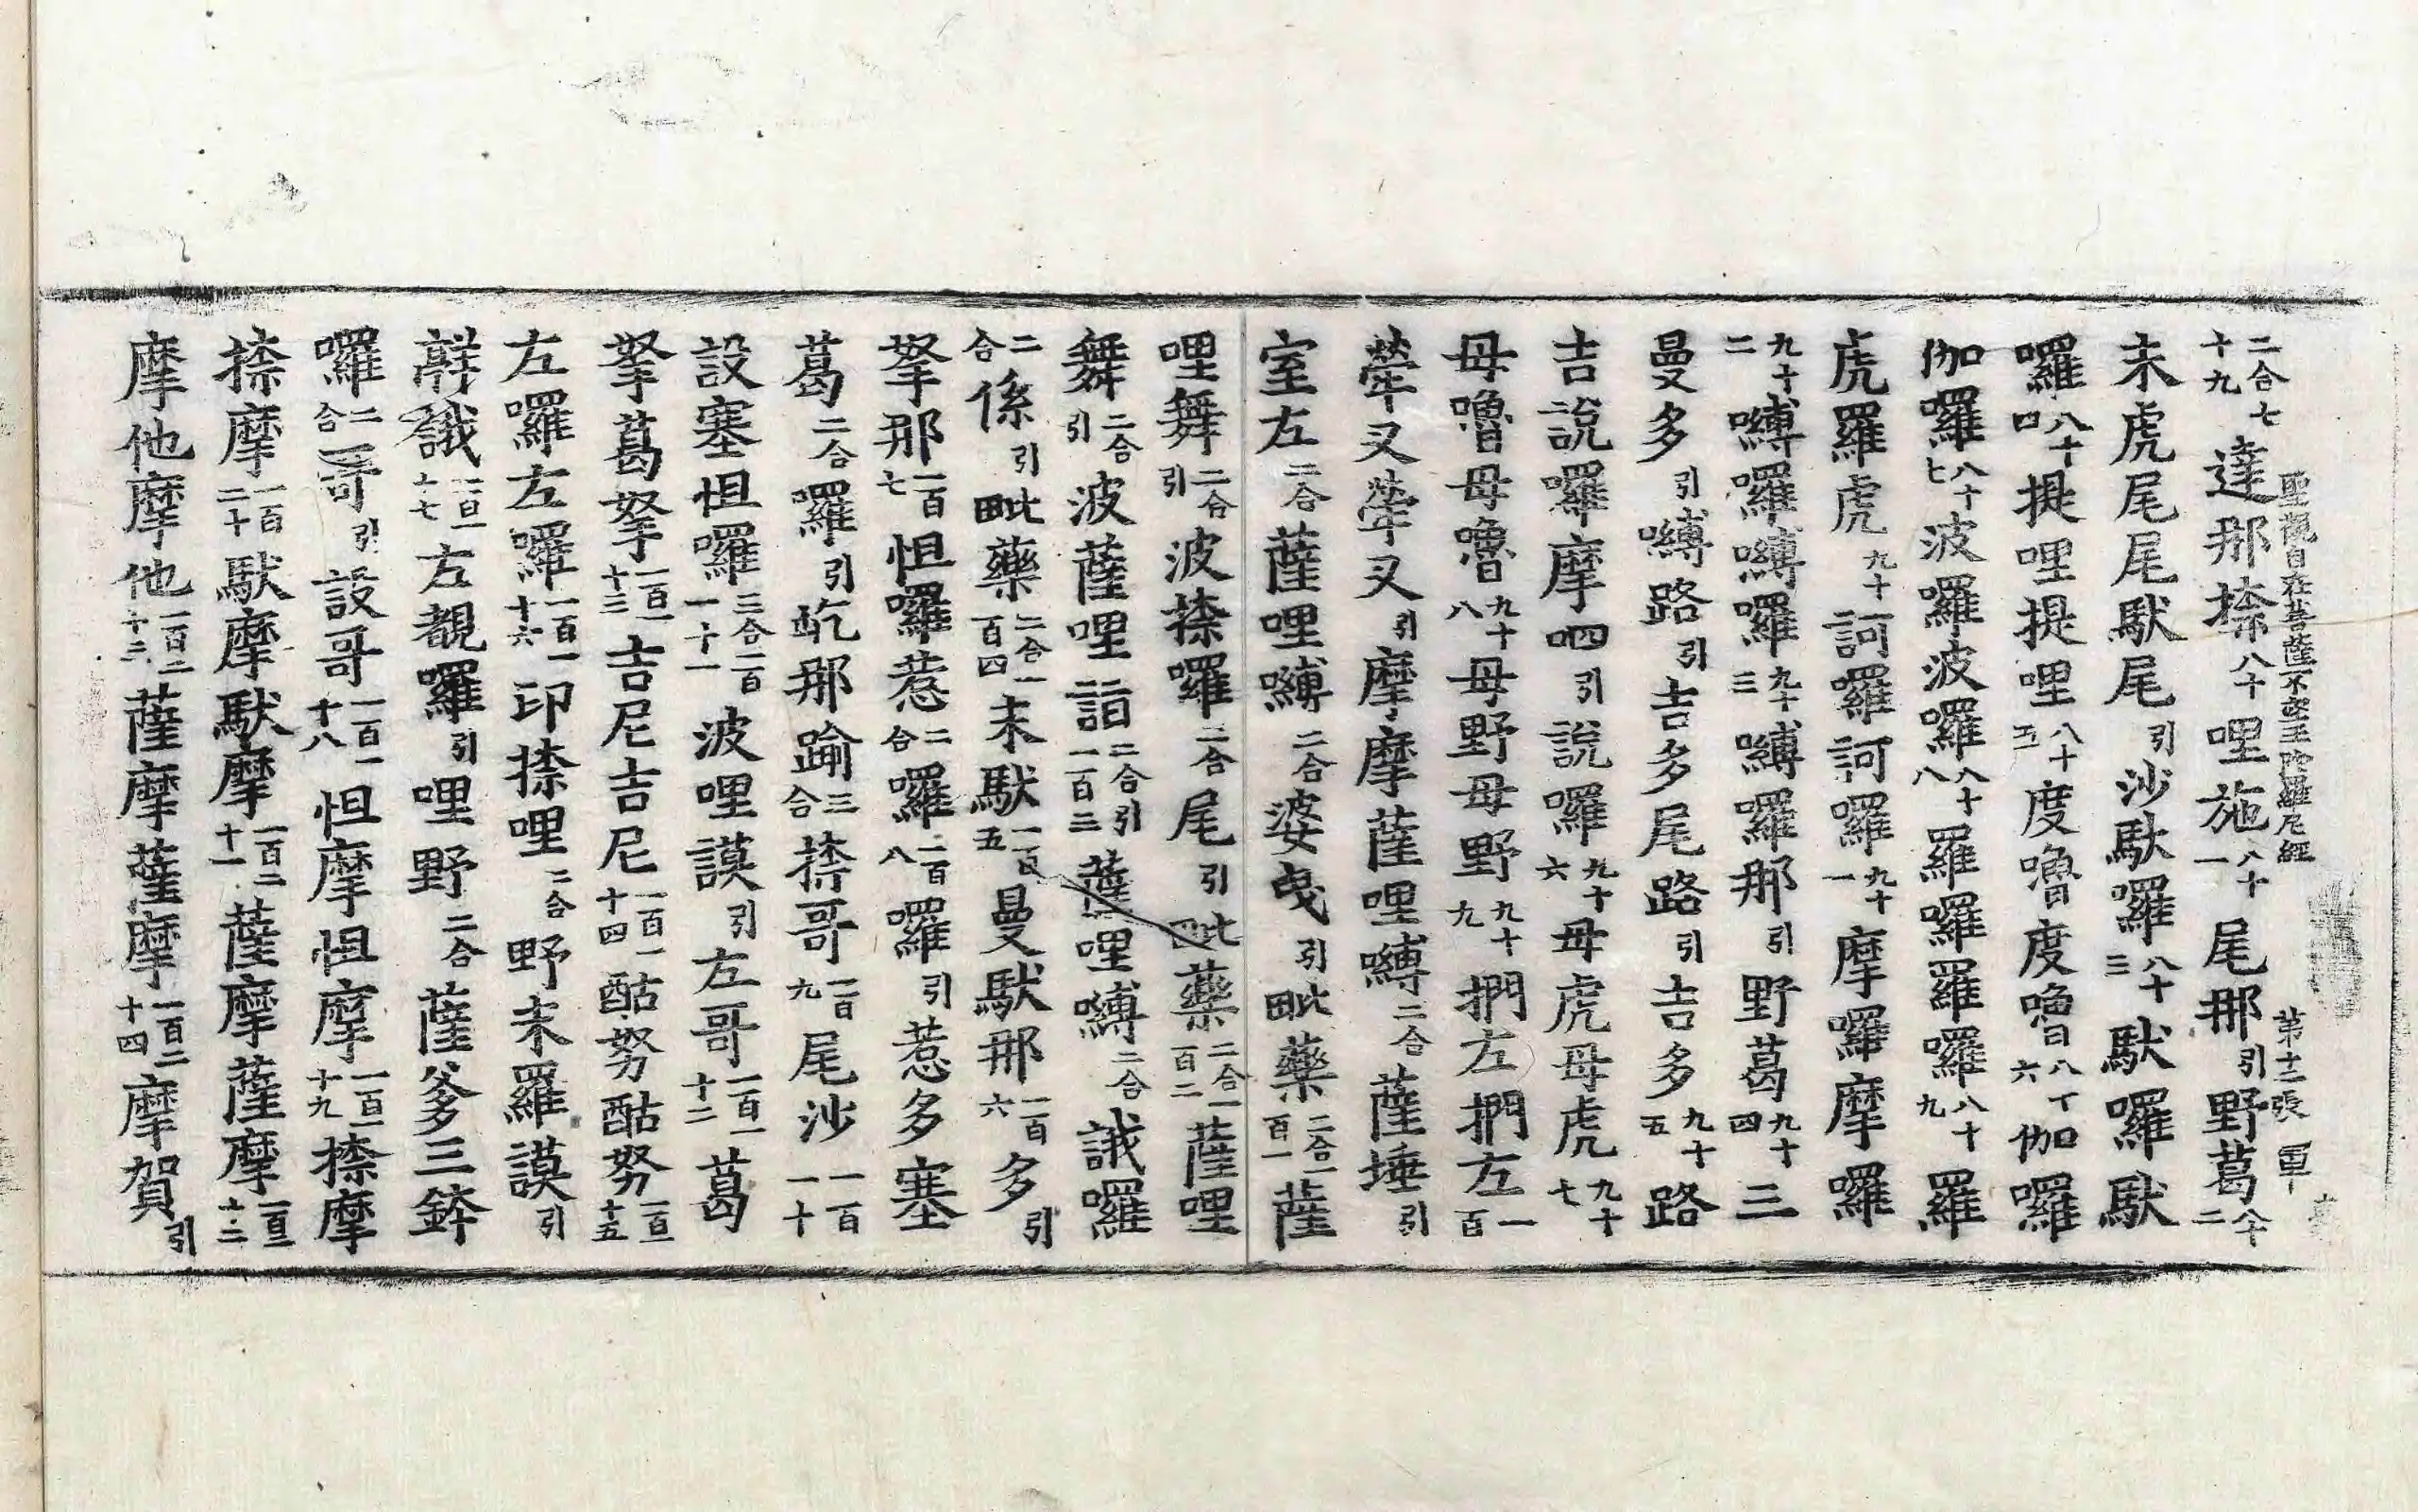 聖觀自在菩薩不空王陁羅尼經　第十二張　覃
二合七十九達那捺八十哩施八十一尾那引野葛八十二
末虎尾尾馱尾引沙馱囉八十三馱囉馱
囉八十四提哩提哩八十五度嚕度嚕八十六伽囉
伽囉八十七波囉波囉八十八羅囉羅囉八十九羅
虎羅虎九十訶羅訶囉九十一摩囉摩囉
九十二嚩囉嚩囉九十三嚩囉那引野葛九十四三
曼多引嚩路引吉多尾路引吉多九十五路
吉說囉摩呬引說囉九十六母虎母虎九十七
母嚕母嚕九十八母野母野九十九捫左捫左一百
犖叉犖叉引摩摩薩哩嚩二合薩埵引
室左二合薩哩嚩二合婆曳引毗藥二合一百一薩
哩舞二合引波捺囉二合尾引毗藥二合一百二薩哩
舞二合引波薩哩詣二合引一百三薩哩嚩二合誐囉
二合係引毗藥二合一百四末馱一百五曼馱那一百六多引
拏那一百七怛囉惹二合囉一百八囉引惹多塞
葛二合囉引訖那踰三合捺哥一百九尾沙一百一十
設塞怛囉三合一百一十一波哩謨引左哥一百一十二葛
拏葛拏一百一十三吉尼吉尼一百一十四酤努酤努一百一十五
左囉左囉一百一十六印捺哩二合野末羅謨引
誐一百一十七左覩囉引哩野二合薩爹三鉢
囉二合哥引設哥一百一十八怛摩怛摩一百一十九捺摩
捺摩一百二十馱摩馱摩一百二十一薩摩薩摩一百二十二
摩他摩他一百二十三薩摩薩摩一百二十四摩賀引